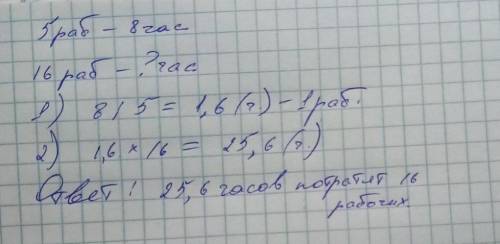 5 раб – 8 час
16 раб – ? час
1) 8 / 5 = 1,6 (ч) – 1 раб.
2) 1,6 × 16 = 25,6 (ч.)
Ответ! 25,6 часов потратят 16
рабочих.